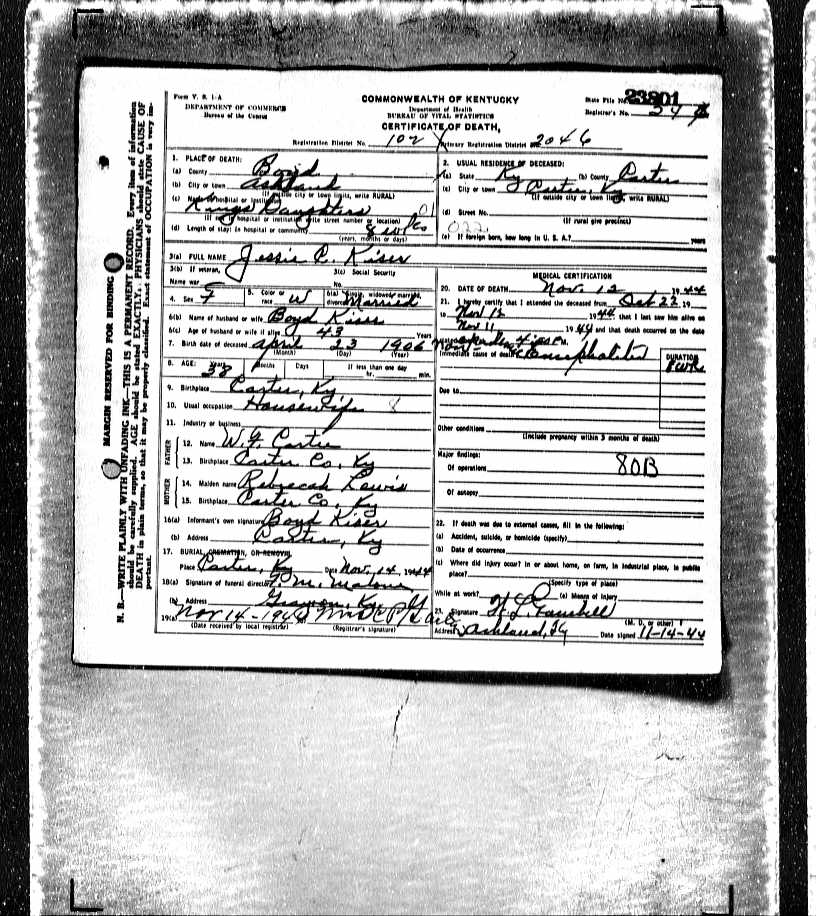 Form V. S. 1-A
DEPARTMENT OF COMMERCE
Bureau of the Census
COMMONWEALTH OF KENTUCKY
Department of Health
BUREAU OF VITAL STATISTICS
CERTIFICATE OF DEATH
State File No. 23801
Registrar's No.
Registration District No. 102 Primary Registration District No. 2046
MARGIN RESERVED FOR BINDING
N. B.—WRITE PLAINLY WITH UNFADING INK—THIS IS A PERMANENT RECORD. Every item of information
should be carefully supplied. AGE should be stated EXACTLY. PHYSICIANS should state CAUSE OF
DEATH in plain terms, so that it may be properly classified. Exact statement of OCCUPATION is very im-
portant.
1. PLACE OF DEATH:
(a) County Boyd
(b) City or town Ashland
(If outside city or town limits, write RURAL)
(c) Name of hospital or institution
Kings Daughters 01
(If not in hospital or institution write street number or location)
(d) Length of stay: in hospital or community 8 wks
(years, months or days)
2. USUAL RESIDENCE OF DECEASED:
(a) State Ky (b) County Carter
(c) City or town Carter, Ky
(If outside city or town limits, write RURAL)
(d) Street No.
(If rural give precinct)
022
(e) If foreign born, how long in U. S. A.? years
3(a) FULL NAME Jessie C. Kiser
3(b) If veteran, 3(c) Social Security
Name war No.
4. Sex F 5. Color or race W 6(a) Single, widowed, married, divorced Married
6(b) Name of husband or wife Boyd Kiser
6(c) Age of husband or wife if alive 43 Years
7. Birth date of deceased April 23 1906
(Month) (Day) (Year)
8. AGE: Years Months Days If less than one day
38 hr. min.
9. Birthplace Carter, Ky
10. Usual occupation Housewife 8
11. Industry or business
FATHER
12. Name W. F. Carter
13. Birthplace Carter Co. Ky
MOTHER
14. Maiden name Rebecah Lewis
15. Birthplace Carter Co. Ky
16(a) Informant's own signature Boyd Kiser
(b) Address Carter, Ky
17. BURIAL, CREMATION, OR REMOVAL
Place Carter, Ky Date Nov. 14, 1944
18(a) Signature of funeral director
(b) Address Grayson, Ky.
19(a) Nov 14-194
(Date received by local registrar) (Registrar's signature)
MEDICAL CERTIFICATION
20. DATE OF DEATH Nov. 12 1944
21. I hereby certify that I attended the deceased from Oct 22 19
to Nov 12 1944 that I last saw him alive on
Nov 11 1944 and that death occurred on the date
Immediate cause of death Encephalitis
DURATION
Due to
Other conditions
(Include pregnancy within 3 months of death)
Major findings:
Of operations 80B
Of autopsy
22. If death was due to external causes, fill in the following:
(a) Accident, suicide, or homicide (specify)
(b) Date of occurrence
(c) Where did injury occur? In or about home, on farm, in industrial place, in public
place?
(Specify type of place)
While at work? (e) Means of injury
23. Signature
(M. D. or other)
Address Ashland, Ky Date signed 11-14-44